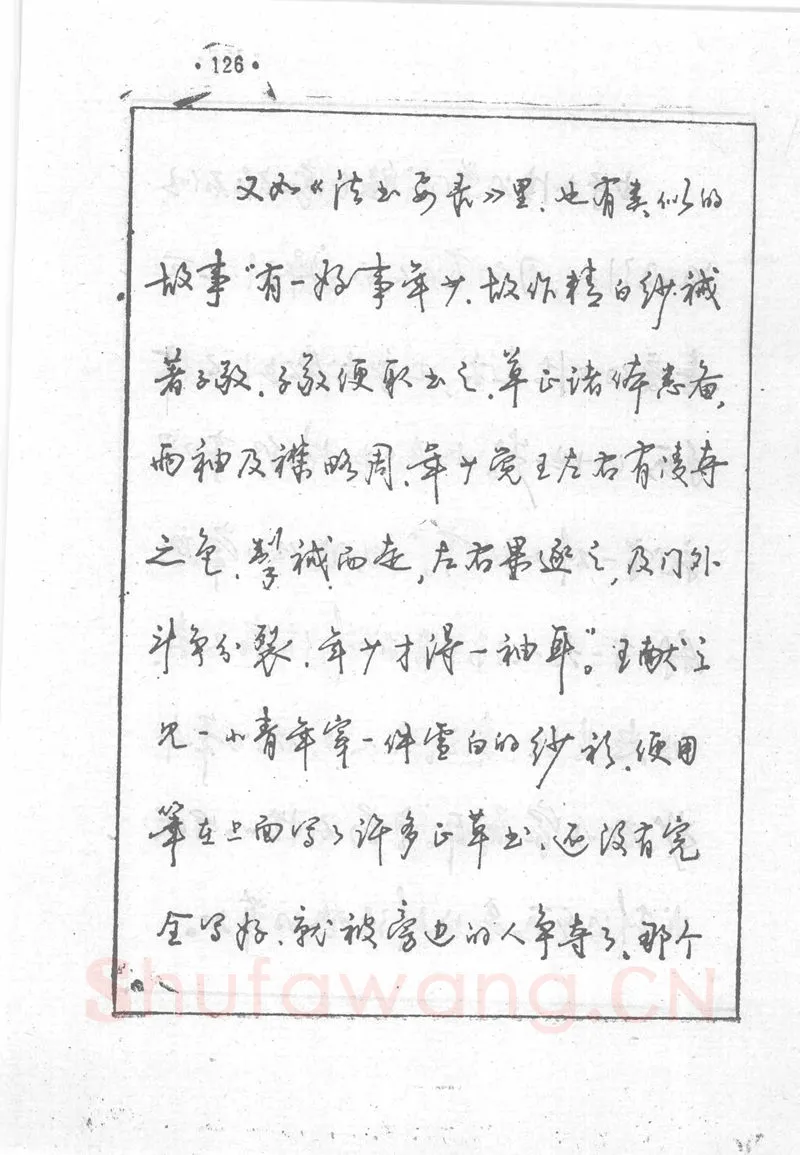 ·126·
又如《法书要录》里、也有类似的
故事“有一好事年少、故作精白纱裓
著子敬、子敬便取书之、草正诸体悉备、
两袖及襟略周、年少觉王左右有凌夺
之色、掣裓而走，左右果逐之，及门外
斗争分裂、年少才得一袖耳”。王献之
见一小青年穿一件雪白的纱衫、便用
笔在上面写了许多正草书、还没有完
全写好、就被旁边的人争夺了、那个
Shufawang.CN